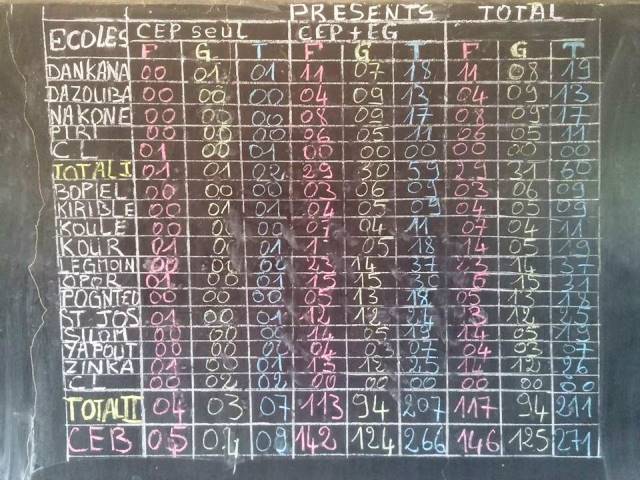 PRESENTS TOTAL
ECOLES CEP seul CEP+EG
F G T F G T F G T
DANKANA 00 01 01 11 07 18 11 08 19
DAZOUBA 00 00 00 04 09 13 04 09 13
NAKONE 00 00 00 08 09 17 08 09 17
PIRI 00 00 00 06 05 11 06 05 11
CL 01 00 01 00 00 00 00 00 00
TOTAL I 01 01 02 29 30 59 29 31 60
BOPIEL 00 00 00 03 06 09 03 06 09
KIRIBLE 00 01 04 05 09 04 05 09
KOULE 00 00 00 07 04 11 07 04 11
KOUR 01 00 01 05 18 14 05 19
LEGMOIN 00 00 23 14 37 23 14 37
OPOR 01 00 01 15 15 30 15 31
POGNTEU 00 00 00 05 13 18 05 13 18
ST JOS 01 00 01 12 12 24 13 12 25
SILOM 00 00 00 14 05 19 14 05 19
YAPOUT 00 00 00 04 03 07 04 03 07
ZINKA 01 00 01 13 12 25 14 12 26
CL 00 02 02 00 00 00 00 00 00
TOTAL II 04 03 07 113 94 207 117 94 211
CEB 05 04 09 142 124 266 146 125 271